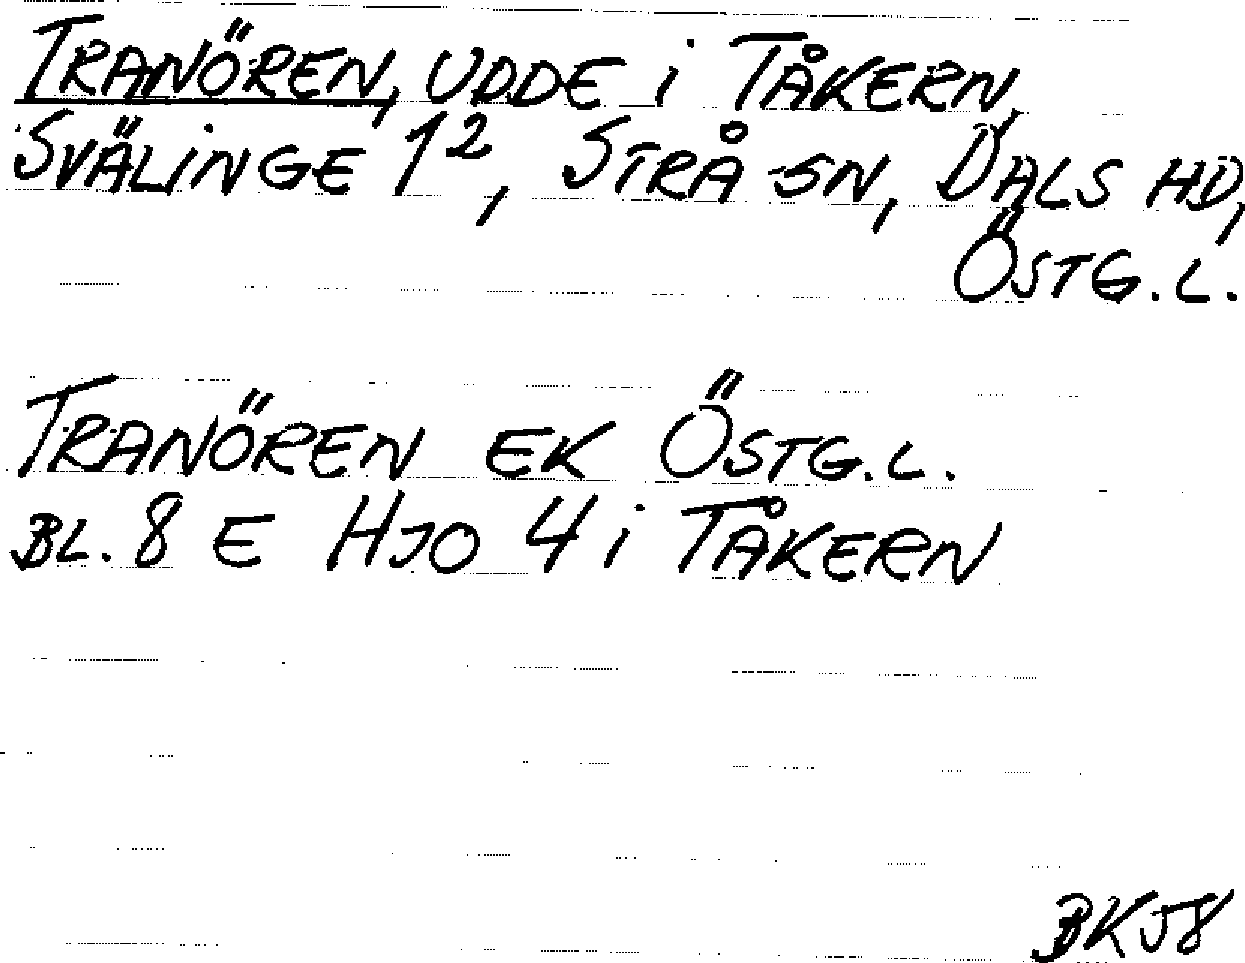 TRANÖREN, UDDE i TÅKERN,
SVÄLINGE 1², STRÅ SN, DALS HD,
ÖSTG.L.
TRANÖREN EK ÖSTG.L.
BL. 8 E HJO 4 i TÅKERN
BK58